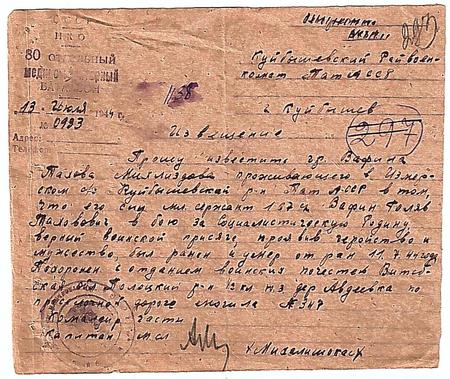 СССР
НКО
80 ОТДЕЛЬНЫЙ
МЕДИКО-САНИТАРНЫЙ
БАТАЛЬОН
13 Июля 1944 г.
№ 0983
Адрес:
Телефон
Куйбышевский Райвоен-
комат ТатАССР
г. Куйбышев
297
Извещение
Прошу известить гр. Вафина
проживающего в Измер-
ском с/с Куйбышевской р-н ТатАССР в том,
что его сын мл. сержант 157 Вафин
в бою за Социалистическую Родину
верный воинской присяге, проявив геройство и
мужество, был ранен и умер от ран 11.7.44 года
Похоронен с отданием воинских почестей Витеб-
ская обл Полоцкий р-н из дер Авдеевка по
проселочной дороге могила № 347
Командир части
Капитан м/сл